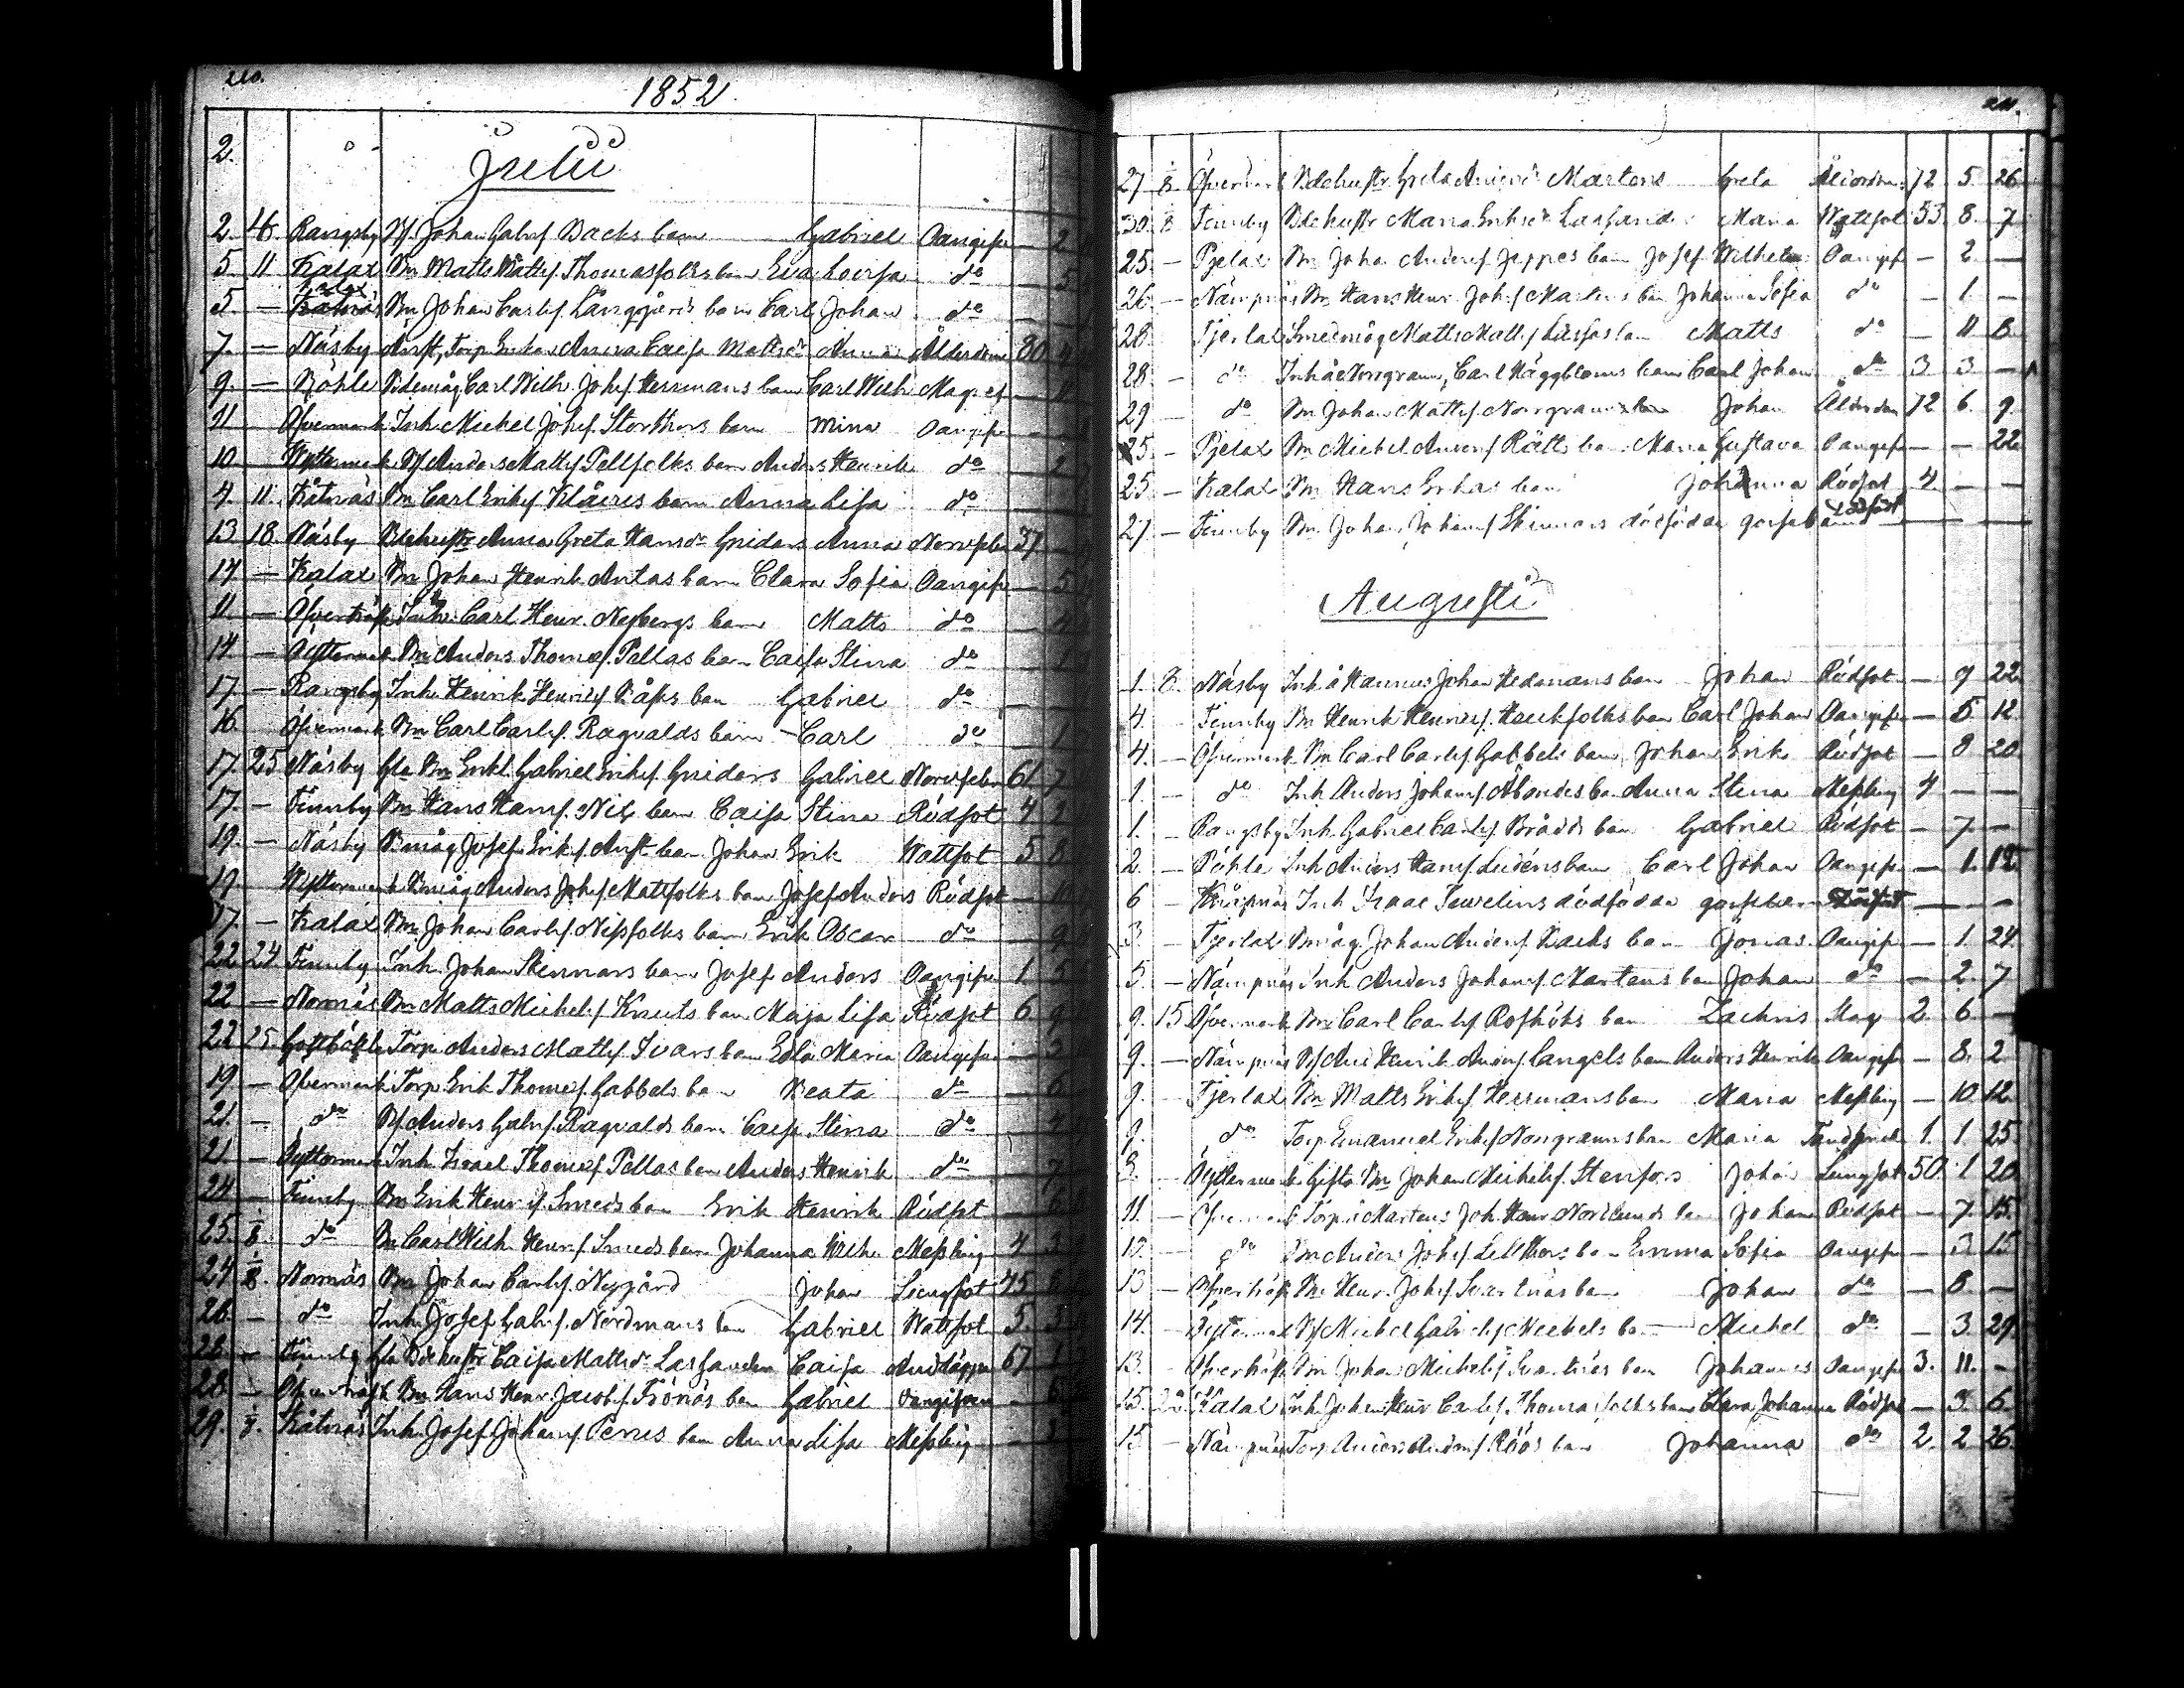 210.
1852.
2.
Julii
2. 4. Rangsby Nf. Johan Gabrs. Backs barn Gabriel Oangifn — 2
5. 11 Kalax Bn Matts Matts. Thomasfolks barn Eva Lovisa do — 5
Kalax
5. — Bn Johan Carls. Långgårds barn Carl Johan do —
7. — Näsby Torp. Enkan Anna Caisa Mattsdr Anna Ålderdom 80 4
9. — Böhle Carl Wilh. Johs. Hermans barn Carl Wilh Magref — 11
11 Öfvermark Inh. Michel Johs. Storthors barn Mina Oangifn —
10. Yttermark Nf Anders Matts. Tellfolks barn Anders Henrik do — 2
4. 11. Kåtnäs Bn Carl Eriks. Klåcres barn Anna Lisa do
13 18 Näsby Bdehustr Anna Greta Hansdr Griders Anna Nervfeber 37
14 — Kalax Bn Johan Henrik Antas barn Clara Sofia Oangifn — 5
11. — Öfverträsk Inh. Carl Henr. Nybergs barn Matts do —
14. — Yttermark Bn Anders Thomas. Pellas barn Caisa Stina do — 1
17. — Rangsby Inh. Henrik Henriks. Båsks barn Gabriel do —
16. Öfvermark Bn Carl Carls. Ragvalds barn Carl do — 1
17. 25 Näsby Gla Bn Enkl. Gabriel Eriks. Griders Gabriel Nervfeber 61 7
17. — Finnby Bn Hans Hans. Nix barn Caisa Stina Rödsot 4 2
19. — Näsby Bmåg Josef Eriks. barn Johan Erik Wattsot 5 8
19 — Yttermark Bmåg Anders Johs. Mattfolks barn Josef Anders Rödsot — 11
17. — Kalax Bn Johan Carls. Nissfolks barn Erik Oscar do — 9
22 24 Finnby Inh. Johan Stennars barn Josef Anders Oangifn 1. 5
22 — Nornäs Bn Matts Michels. Knuts barn Maja Lisa Rödsot 6. 9
22 25 Gottböhle Torp. Anders Matts. Ivars barn Edla Maria Oangifven — 3
19 — Öfvermark Torp. Erik Thomas. Gabbels barn Beata do — 6
21. — do Nf Anders Gabrs. Ragvalds barn Caisa Stina do — 4
21. — Yttermark Inh. Israel Thomas. Pellas barn Anders Henrik do — 7
24 — Finnby Bn Erik Henriks. Smeds barn Erik Henrik Rödsot — 6
25. 1/8. do Bn Carl Wilh. Henrs. Smeds barn Johanna Wilh. Messling 4 3
24 1/8. Nornäs Bn Johan Carls. Nygård Johan Lungsot 45 8
26. — do Inh. Josef Gabrs. Nordmans barn Gabriel Wattsot 5. 5
28. — Finnby Gla Bdehustr Caisa Mattsdr Lassander Caisa Andtäppa 67 1
28. — Öfverträsk Bn Hans Henr. Jacobs. Frönäs barn Gabriel Oangifven — 6
29. 1/8. Kåtnäs Inh. Josef Johans. Perus barn Anna Lisa Messling — 3
211.
27 1/8. Öfvermark Bdehustr. Greta Andersdr Martens Greta Ålderdom 72 5. 26
30. 1/8 Finnby Bdehustr Maria Eriksdr Lassander Maria Wattsot 53. 8. 7
25. — Pjelax Bn Johan Anders. Jeppes barn Josef Wilhelm Oangifn — 2. —
26. — Nämpnäs Bn Hans Henr. Johs. Martens barn Johanna Sofia do — 1. —
28 Tjerlax Smedmåg Matts Matts. barn Matts do — 11 8.
28. — do Inh. å Norrgrann, Carl Häggbloms barn Carl Johan do 3. 3. —
29 — do Bn Johan Matts. Norrgranns Johan Ålderdom 72 6. 9.
25. — Pjelax Bn Michel Anders. Rätts barn Maria Gustava Oangifn — — 22
25. — Kalax Bn Hans barn Johanna Rödsot 4. — —
27. — Finnby Bn Johan Johans. Skinnars dödfödda gossebarn Dödfödt — — —
Augusti
1. 8. Näsby Inh. å Hannus Johan Hedmans barn Johan Rödsot — 9 22
4. — Finnby Bn Henrik Henriks. Henrikfolks barn Carl Johan Oangifn — 5. 12
4. — Öfvermark Bn Carl Carls. Gabbels barn Johan Erik Rödsot — 8 20
1. — do Inh Anders Johans. Åbondes barn Anna Stina Messling 4 — —
1. — Rangsby Inh. Gabriel Carls. Brådds barn Gabriel Rödsot — 7. —
2. — Böhle Inh Anders Hans. Lidéns barn Carl Johan Oangifn — 1. 12
6 — Inh Isaac Tewelins dödfödda gossebarn — — —
3. — Tjerlax Bmåg. Johan Anders. Backs barn Jonas Oangifn — 1. 24.
5. — Nämpnäs Inh Anders Johans. Martens barn Johan do — 2. 7
9. 15 Öfvermark Bn Carl Carls. Rosköts barn Zachris Mag 2. 6. —
9. — Nämpnäs Nf And Henrik Anders. Langels barn Anders Henrik Oangifn — 8. 2
9. — Tjerlax Bn Matts Eriks. Hermans barn Maria Messling — 10 12
9. do Torp Emanuel Eriks. Norrgranns barn Maria 1. 1 25
8. — Yttermark Gifta Bn Johan Michels. Stenfors Johan Lungsot 50. 1 20
11. — Öfvermark Torp. å Martens Joh. Henr. Norrlunds barn Johan Rödsot — 7. 15.
12. — do Bn Anders Johs. Lillthors barn Emma Sofia Oangifn — 3. 15
13 — Öfverträsk Bn Henr. Johs. Svartnäs barn Johan do — 8. —
14. — Yttermark Nf Michel Gabriels. Michels barn Michel do — 3. 29.
13. — Öfverträsk Bn Johan Michels. Svartnäs barn Johannes Oangifn 3. 11. —
15. 22 Kalax Inh. Johan Henr. Carls. Thomasfolks barn Clara Johanna Rödsot — 3. 6.
15 — Nämpnäs Torp. Anders Anders. Röös barn Johanna do 2. 2 26